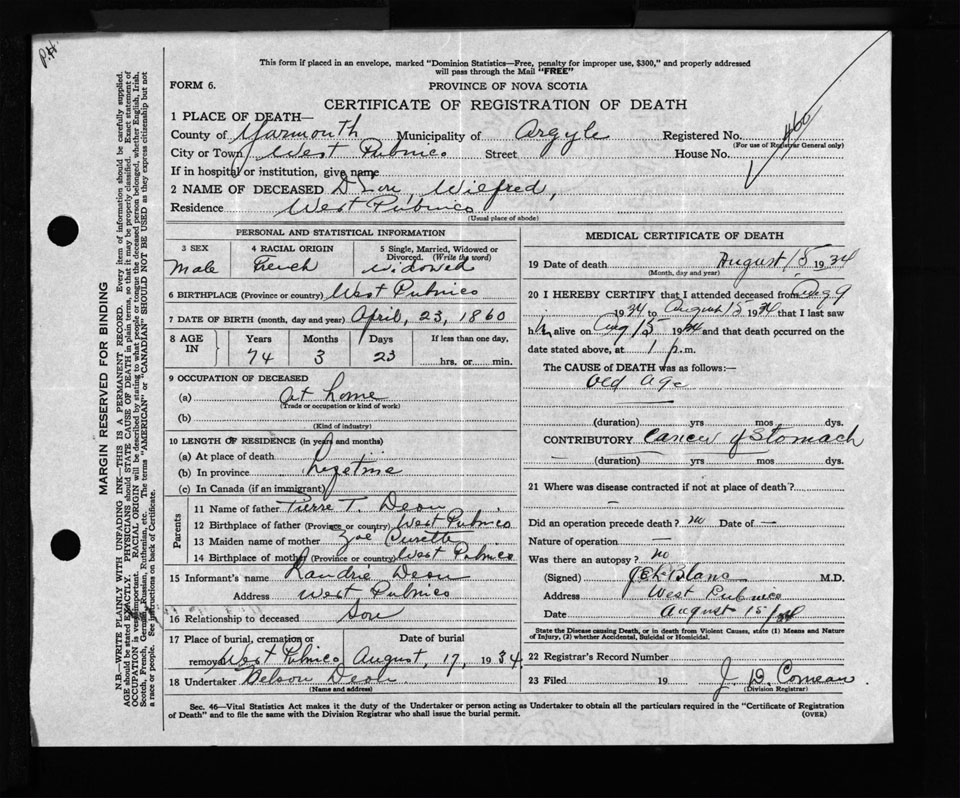 P.H.
This form if placed in an envelope, marked "Dominion Statistics—Free, penalty for improper use, $300," and properly addressed
will pass through the Mail "FREE"
FORM 6.
PROVINCE OF NOVA SCOTIA
CERTIFICATE OF REGISTRATION OF DEATH
1 PLACE OF DEATH—
County of Yarmouth Municipality of Argyle Registered No. 460
(For use of Registrar General only)
City or Town West Pubnico Street House No.
If in hospital or institution, give name
2 NAME OF DECEASED Wilfred,
Residence West Pubnico
(Usual place of abode)
PERSONAL AND STATISTICAL INFORMATION
3 SEX Male
4 RACIAL ORIGIN French
5 Single, Married, Widowed or Divorced. (Write the word) widowed
6 BIRTHPLACE (Province or country) West Pubnico
7 DATE OF BIRTH (month, day and year) April, 23, 1860
8 AGE IN Years Months Days If less than one day,
74 3 23 hrs. or min.
9 OCCUPATION OF DECEASED
(a) At home
(Trade or occupation or kind of work)
(b)
(Kind of industry)
10 LENGTH OF RESIDENCE (in years and months)
(a) At place of death
(b) In province
(c) In Canada (if an immigrant)
Parents
11 Name of father T. Deon
12 Birthplace of father (Province or country) West Pubnico
13 Maiden name of mother Zoe
14 Birthplace of mother (Province or country) West Pubnico
15 Informant's name Landrie Deon
Address West Pubnico
16 Relationship to deceased Son
17 Place of burial, cremation or removal Date of burial
West Pubnico August, 17, 1934
18 Undertaker Nelson Deon
(Name and address)
MEDICAL CERTIFICATE OF DEATH
19 Date of death August 15 1934
(Month, day and year)
20 I HEREBY CERTIFY that I attended deceased from Aug 9
1934 to August 15 1934 that I last saw
him alive on Aug 15 1934 and that death occurred on
date stated above, at 1 p.m.
The CAUSE of DEATH was as follows:—
old age
(duration) yrs mos dys.
CONTRIBUTORY Cancer of Stomach
(duration) yrs mos dys.
21 Where was disease contracted if not at place of death?
Did an operation precede death? no Date of —
Nature of operation —
Was there an autopsy? no
(Signed) LeBlanc M.D.
Address West Pubnico
Date August 15/34
State the Disease causing Death, or in death from Violent Causes, state (1) Means and Nature
of Injury, (2) whether Accidental, Suicidal or Homicidal.
22 Registrar's Record Number
23 Filed 19 J. D. Comeau
(Division Registrar)
Sec. 46—Vital Statistics Act makes it the duty of the Undertaker or person acting as Undertaker to obtain all the particulars required in the "Certificate of Registration
of Death" and to file the same with the Division Registrar who shall issue the burial permit.
(OVER)
MARGIN RESERVED FOR BINDING
N.B.—WRITE PLAINLY WITH UNFADING INK—THIS IS A PERMANENT RECORD. Every item of information should be carefully supplied.
AGE should be stated EXACTLY. PHYSICIANS should STATE CAUSE OF DEATH in plain terms, so that it may be properly classified. Exact statement of
OCCUPATION is very important. RACIAL ORIGIN will be described by stating to what people or tongue the deceased person belonged, whether English, Irish,
Scotch, French, German, Russian, Ruthenian, etc. The terms "AMERICAN" or "CANADIAN" SHOULD NOT BE USED as they express citizenship but not
a race or people. See instructions on back of Certificate.